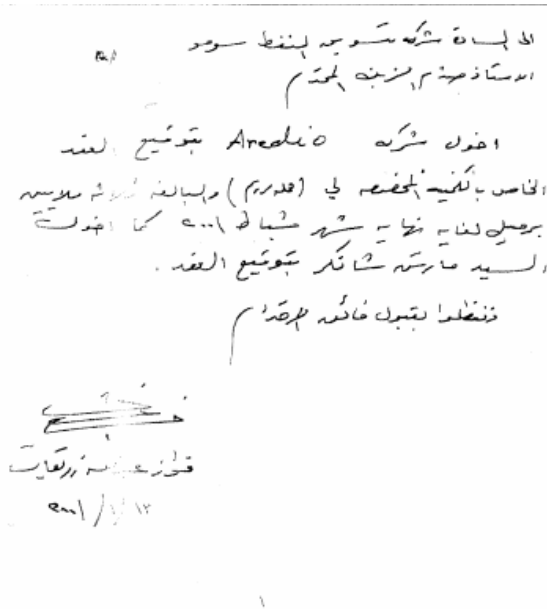 الى السادة شركة تسويق النفط سومو
الاستاذ صدام الزبن المحترم
اخول شركة Aredio بتوقيع العقد
الخاص بالكمية المخصصة لي (       ) والبالغة ثلاثة ملايين
برميل لغاية نهاية شهر شباط ٢٠٠١ كما اخول
السيد مارتن شانكر بتوقيع العقد.
وتفضلوا بقبول فائق الاحترام
فواز زريقات
٢٠٠١/١/١٢
١